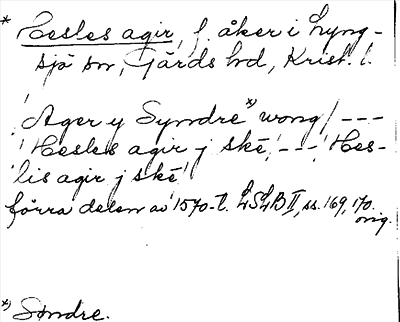 * Hesles agir, f. åker i Lyng-
sjö sn, Gärds hd, Krist. l.
'Ager y Syndre*) wong / ---
'Hesles agir j skē', ---, 'Hes-
lis agir j skē'
förra delen av 1570-t. LSLB II, ss. 169, 170.
orig.
*) Søndre.